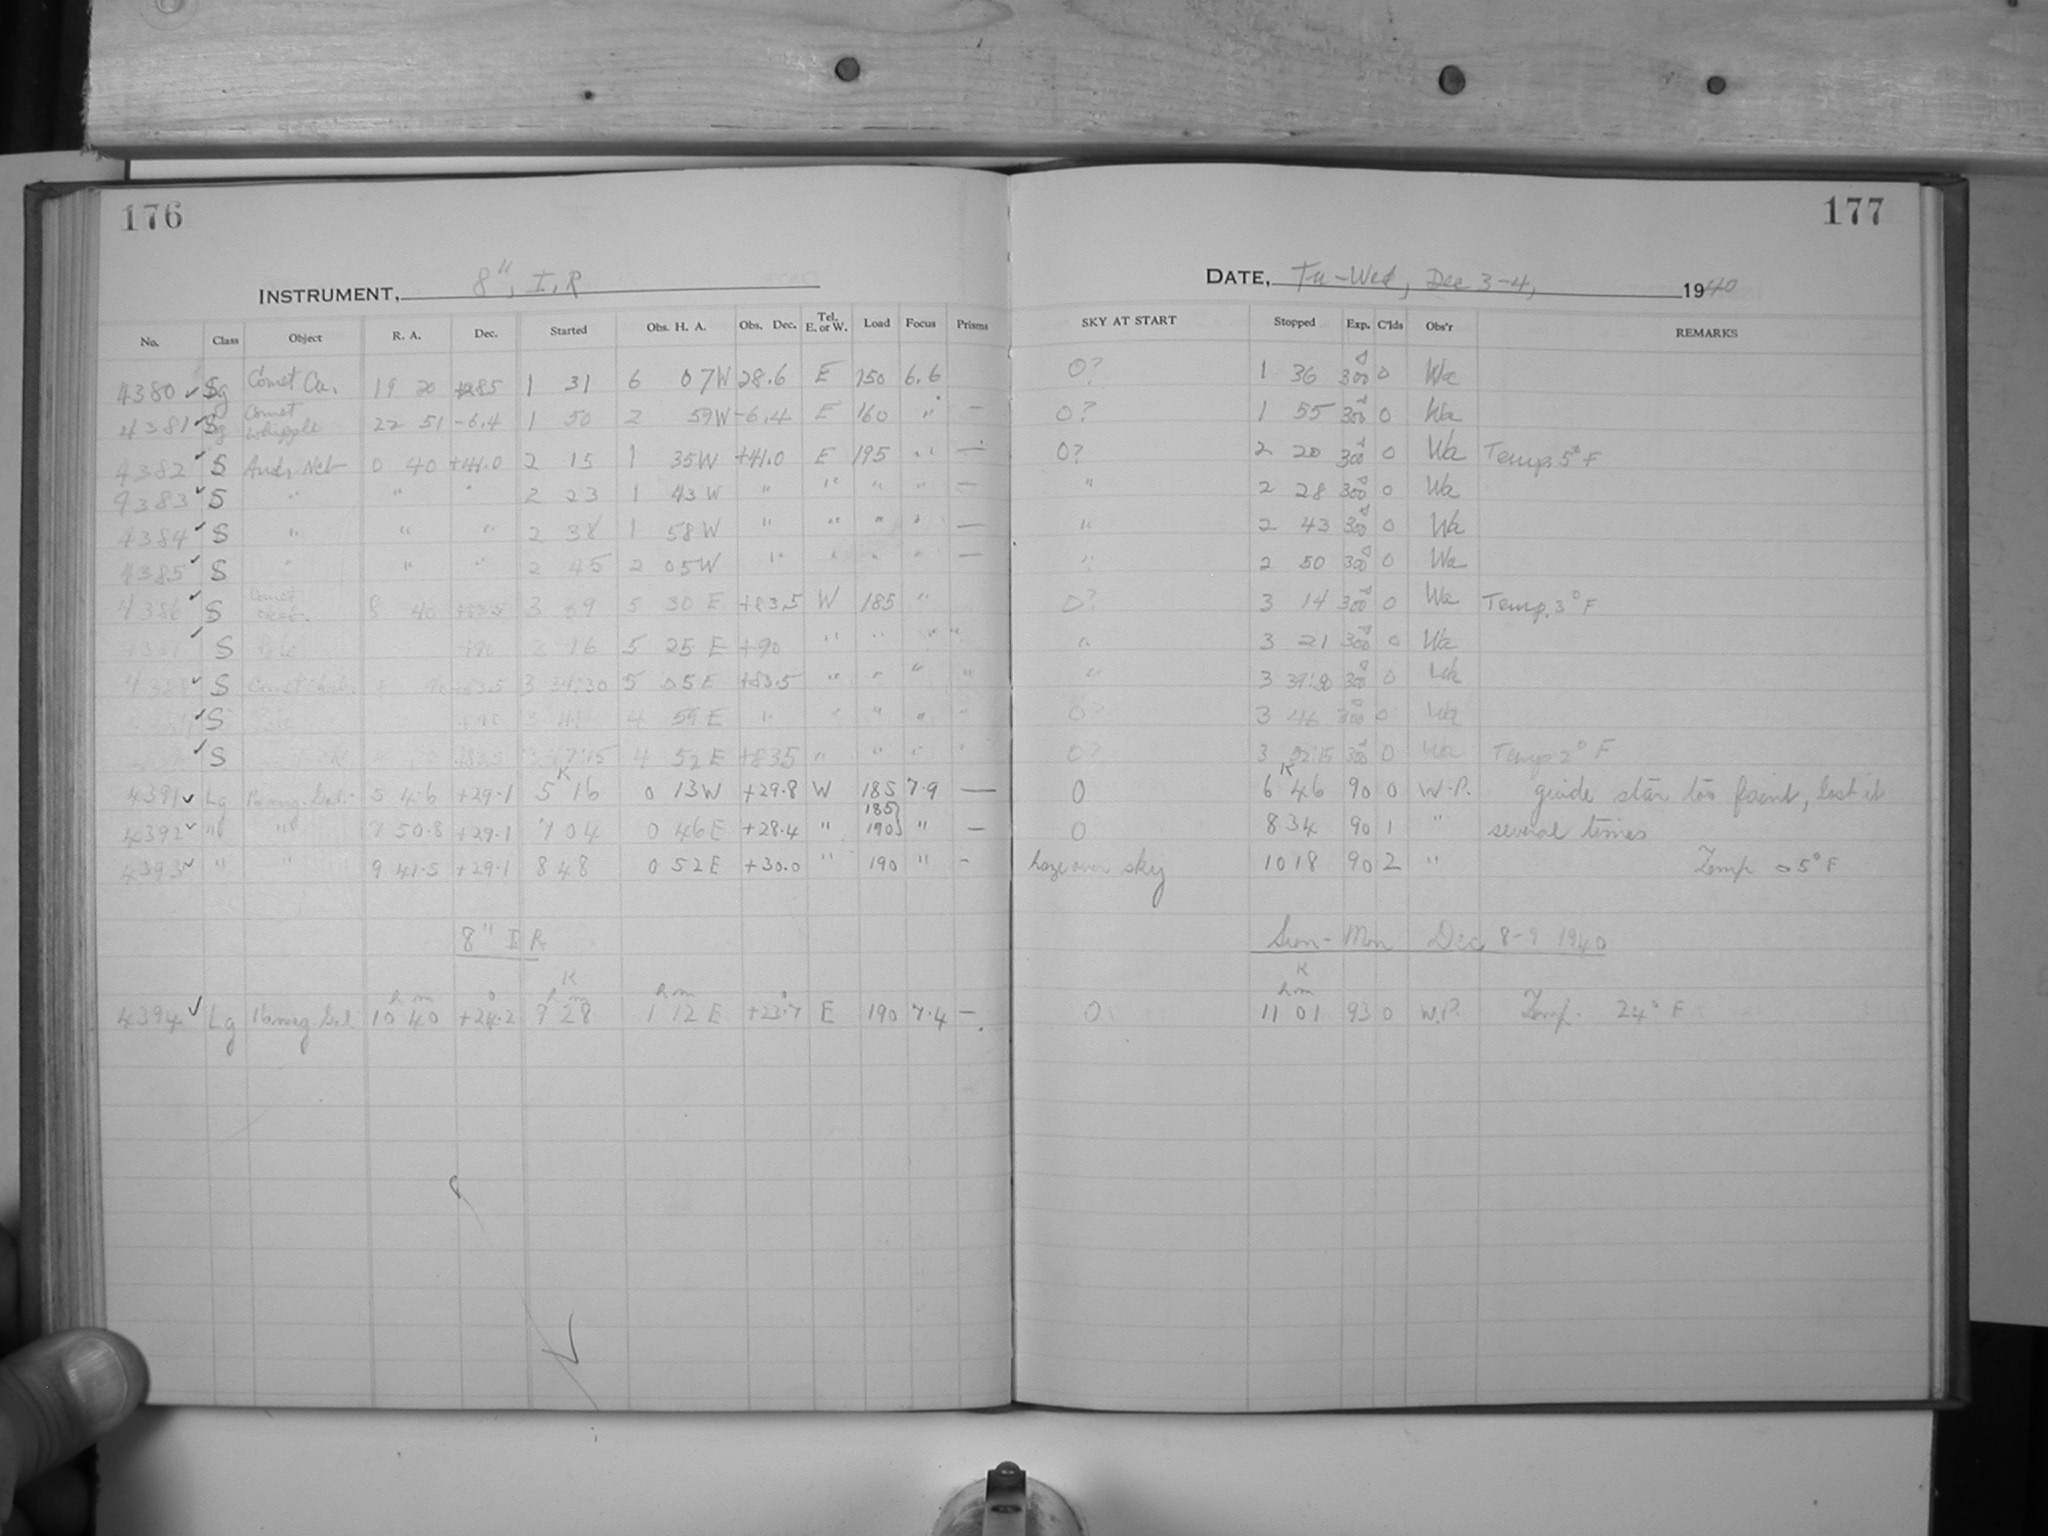 176
177
INSTRUMENT, 8", I, R
DATE, Tu-Wed, Dec 3-4, 1940
No. Class Object R. A. Dec. Started Obs. H. A. Obs. Dec. Tel. E. or W. Load Focus Prisms SKY AT START Stopped Exp. C'lds Obs'r REMARKS
4380 ✓ Sg Comet Cu. 19 20 1 31 6 07W 28.6 E 150 6.6 0? 1 36 300 0 Wa
4381 ✓ Sg Comet Whipple 22 51 -6.4 1 50 2 59W -6.4 E 160 " — 0? 1 55 300 0 Wa
4382 ✓ S And. Neb 0 40 +41.0 2 15 1 35W +41.0 E 195 " — 0? 2 20 300 0 Wa Temp. 5° F
4383 ✓ S " " " 2 23 1 43W " " " " — " 2 28 300 0 Wa
4384 ✓ S " " " 2 38 1 58W " " " " — " 2 43 300 0 Wa
4385 ✓ S " " " 2 45 2 05W " " " " — " 2 50 300 0 Wa
4386 ✓ S Comet 8 40 +83.5 3 09 5 30 E +83.5 W 185 " 0? 3 14 300 0 Wa Temp. 3° F
✓ S Pole +90 3 16 5 25 E +90 " " " " " 3 21 300 0 Wa
4388 ✓ S Comet 3 34:30 5 05 E +83.5 " " " " " 3 39:30 300 0 Wa
✓ S +90 3 41 4 59 E " " " " " 0? 3 46 300 0 Wa
✓ S 3 47:15 4 52 E +83.5 " " " " 0? 3 52:15 300 0 Wa Temp 2° F
K K
4391 ✓ Lg 16 mag. Gal. 5 4.6 +29.1 5 16 0 13W +29.8 W 185 7.9 — 0 6 46 90 0 W.P. guide star too faint, lost it
4392 ✓ " " 7 50.8 +29.1 7 04 0 46 E +28.4 " 185} 190} " — 0 8 34 90 1 " several times
4393 ✓ " " 9 41.5 +29.1 8 48 0 52 E +30.0 " 190 " - haze over sky 10 18 90 2 " Temp 5° F
8" I R Sun-Mon Dec 8-9 1940
K K
h m ° h m h m ° h m
4394 ✓ Lg 16 mag Gal 10 40 +24.2 9 28 1 12 E +23.7 E 190 7.4 — 0 11 01 93 0 W.P. Temp. 24° F